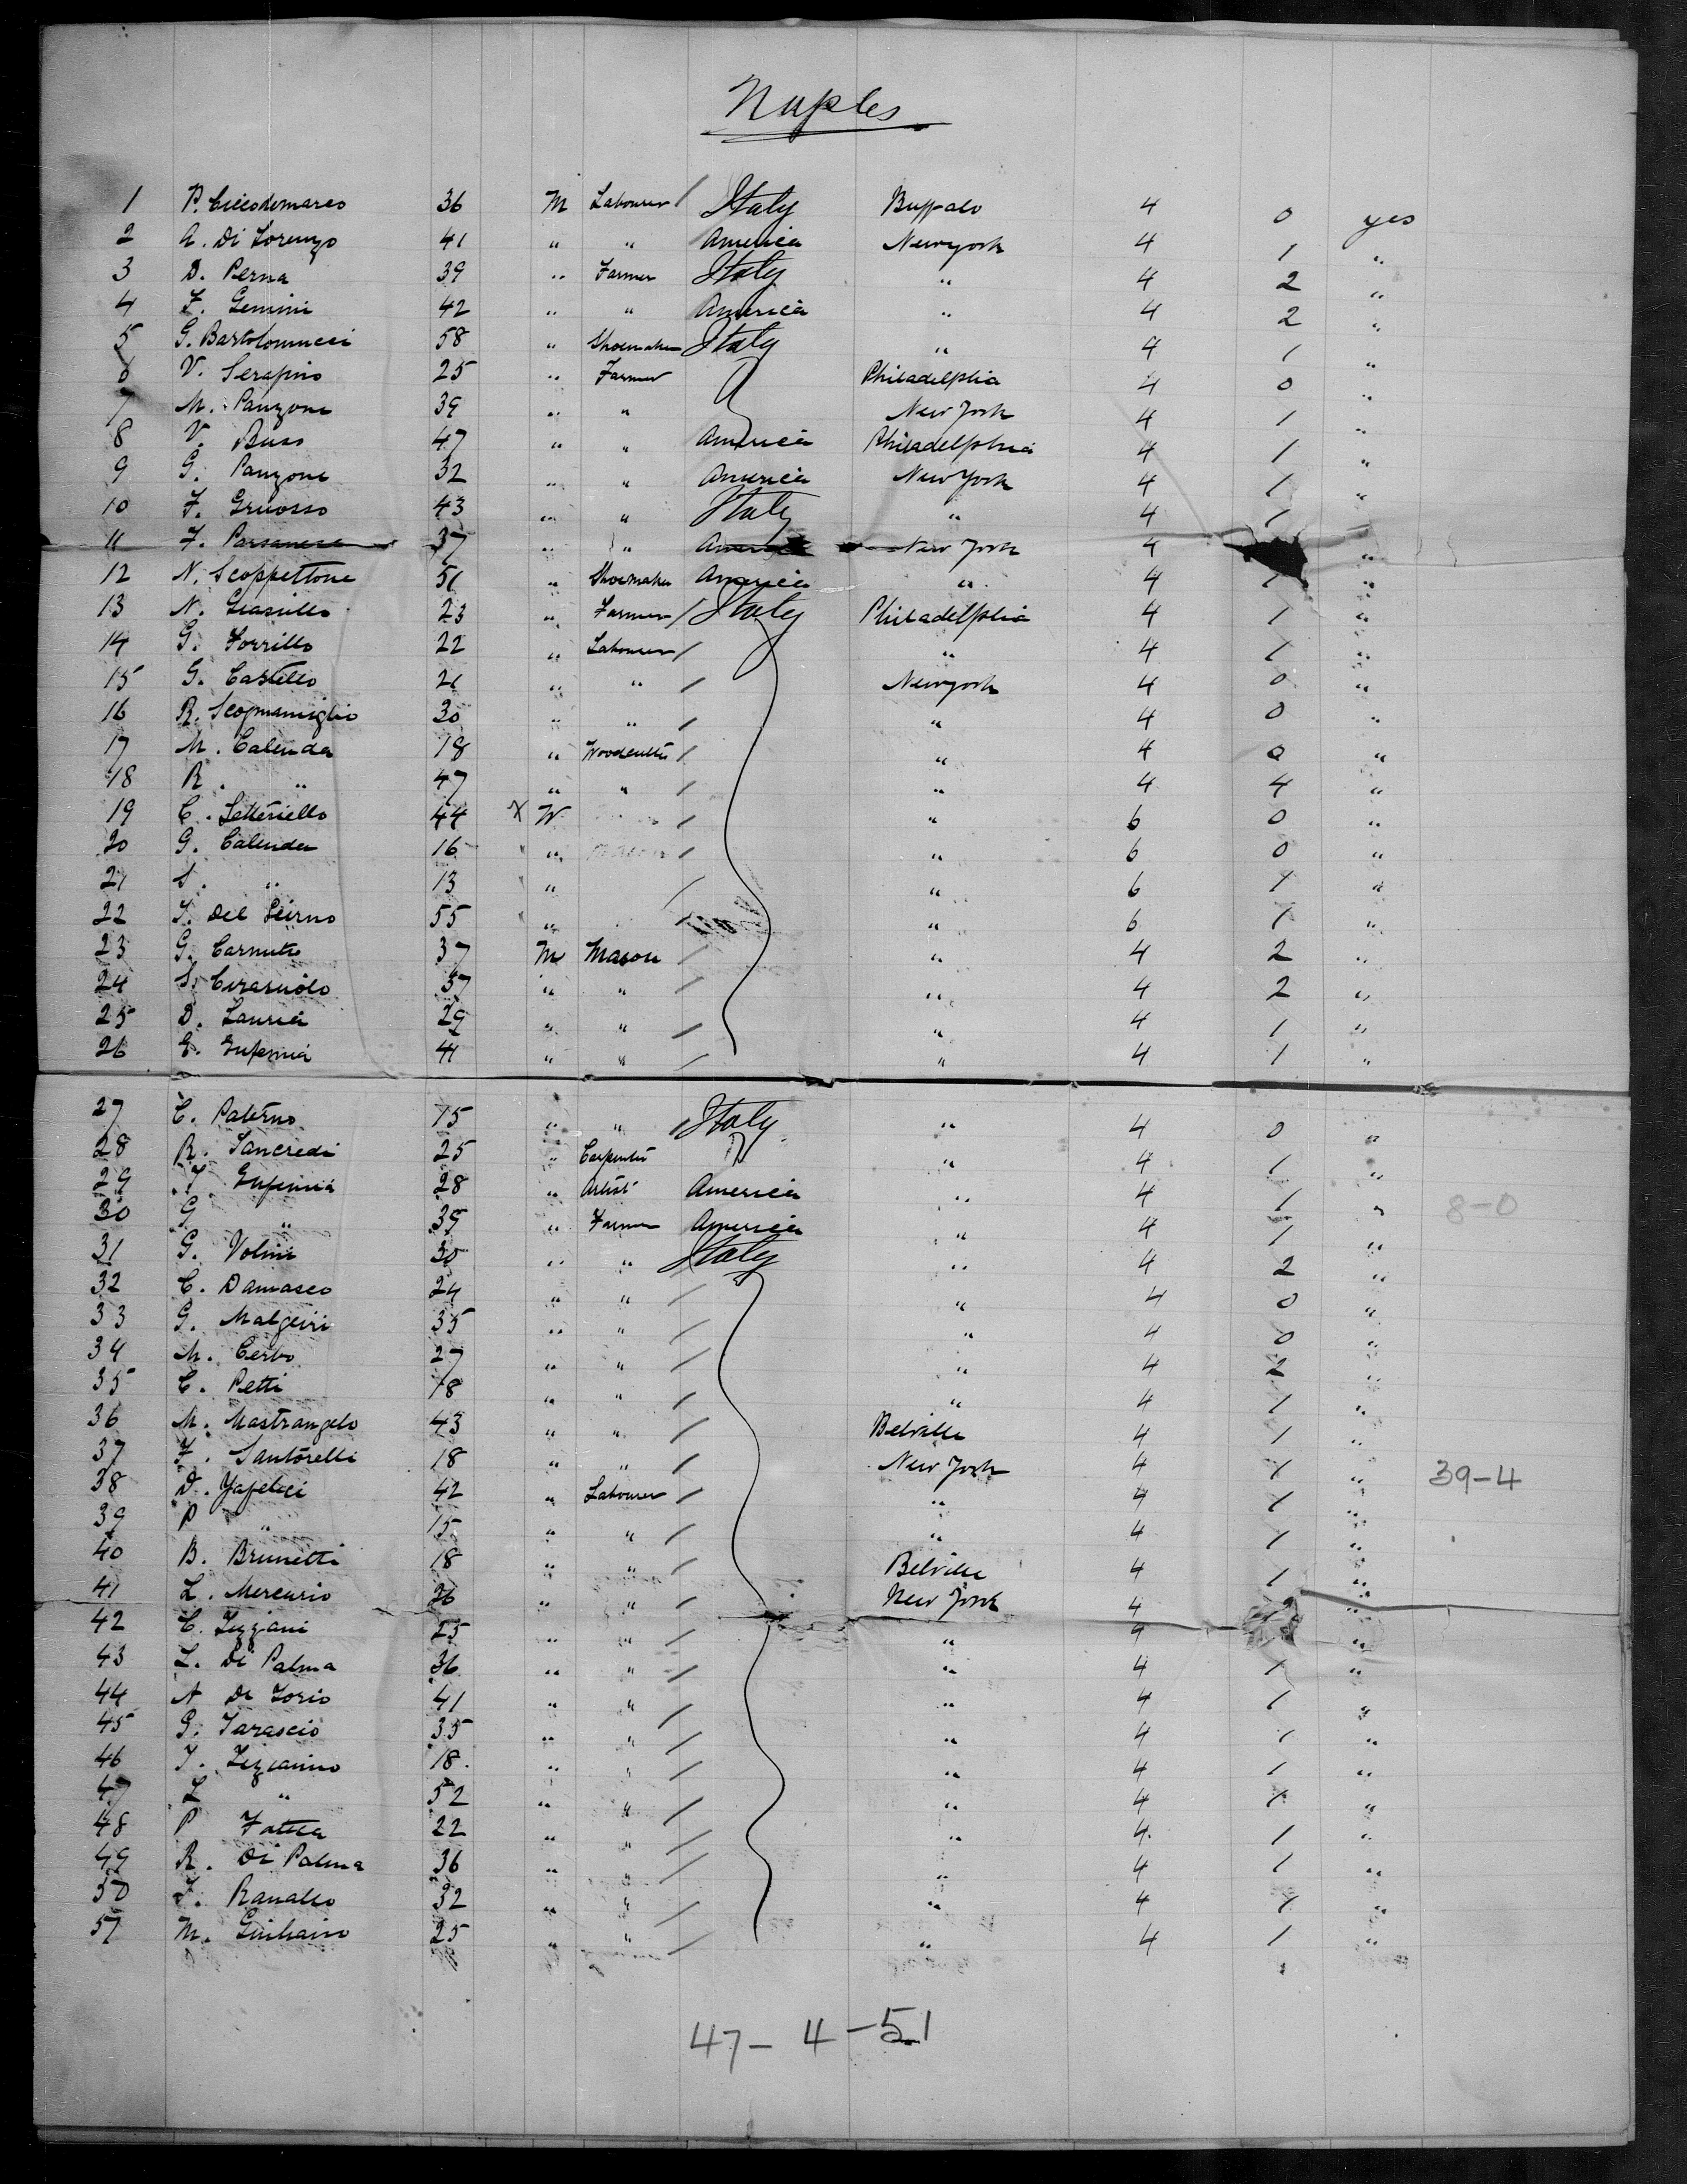 Naples
1 P. Ciccodemarco 36 M Labourer / Italy Buffalo 4 0 yes
2 A. Di Lorenzo 41 " " America Newyork 4 1 "
3 D. Perna 39 " Farmer Italy " 4 2 "
4 F. Gemini 42 " " America " 4 2 "
5 G. Bartolomucci 58 " Shoemaker Italy " 4 1 "
6 V. Serapino 25 " Farmer Philadelphia 4 0 "
7 M. Panzone 39 " " New York 4 1 "
8 V. Buss 47 " " America Philadelphia 4 1 "
9 G. Panzone 32 " " America New York 4 1 "
10 F. Gruosso 43 " " Italy " 4 1 "
11 F. Parsanese 37 " " America New York 4 "
12 N. Scoppettone 51 " Shoemaker America " 4 1 "
13 N. 23 " Farmer / Italy Philadelphia 4 1 "
14 G. Torrillo 22 " Labourer / " 4 1 "
15 G. Castello 21 " " / Newyork 4 0 "
16 R. Scopmamiglio 30 " " / " 4 0 "
17 M. Calenda 18 " Woodcutter / " 4 0 "
18 R. " 47 " " / " 4 4 "
19 C. Setteriello 44 X W / " 6 0 "
20 G. Calenda 16 " / " 6 0 "
21 S. " 13 " / " 6 1 "
22 Del 55 " / " 6 1 "
23 G. Carnuto 37 M Mason / " 4 2 "
24 S. Cirasuolo 37 " " / " 4 2 "
25 D. Lauria 29 " " / " 4 1 "
26 E. Eufemia 41 " " / " 4 1 "
27 C. Paterno 15 " " / Italy " 4 0 "
28 R. Tancredi 25 " Carpenter " 4 1 "
29 F. Eufemia 28 " Artist America " 4 1 " 8-0
30 G " 39 " Farmer America " 4 1 "
31 G. Volini 30 " " Italy " 4 2 "
32 C. Damasco 24 " " / " 4 0 "
33 G. Malgeiri 35 " " / " 4 0 "
34 M. Cerbo 27 " " / " 4 2 "
35 C. Petti 18 " " / " 4 1 "
36 M. Mastrangelo 43 " " / Belville 4 1 "
37 F. Santorelli 18 " " / New York 4 1 " 39-4
38 D. Yapelici 42 " Labourer / " 4 1 "
39 P " 15 " " / " 4 1 "
40 B. Brunetti 18 " " / Belville 4 1 "
41 L. Mercurio 26 " " / New York 4 "
42 C. 25 " " / " 4 "
43 L. Di Palma 36 " " / " 4 1 "
44 N De Iorio 41 " " / " 4 1 "
45 G. Tarascio 35 " " / " 4 1 "
46 T. 18. " " / " 4 1 "
47 L " 52 " " / " 4 1 "
48 P 22 " " / " 4. 1 "
49 R. Di Palma 36 " " / " 4 1 "
50 F. Ranallo 32 " " / " 4 1 "
51 M. Giuliano 25 " " / " 4 1 "
47 - 4 - 51